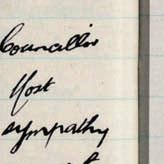 Councillor
Most
sympathy